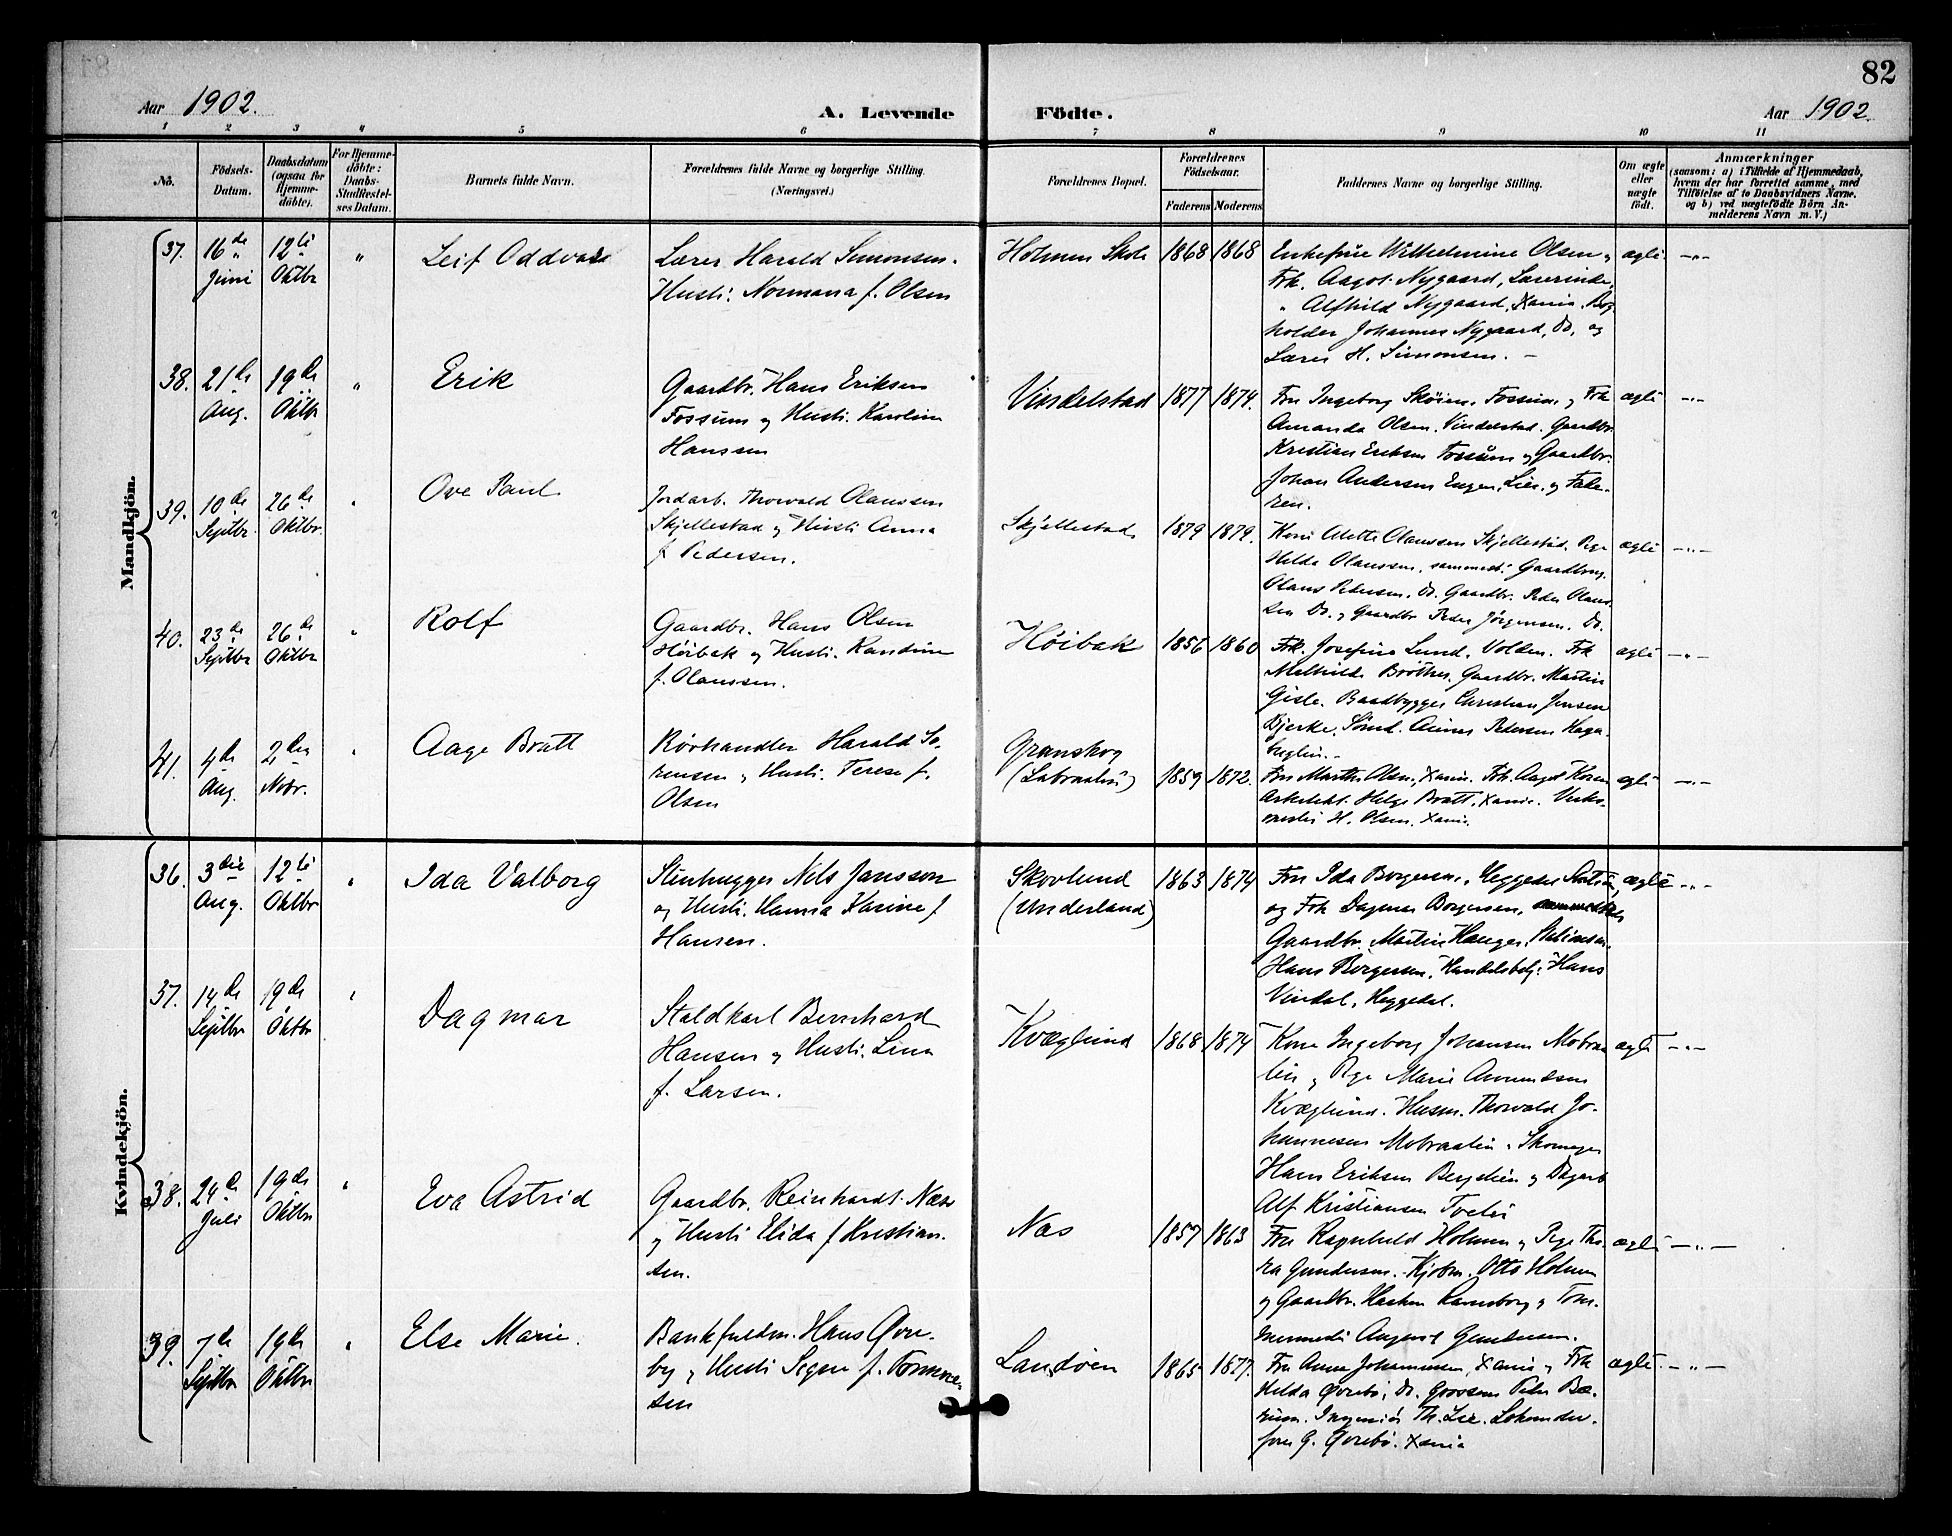 82
Aar 1902.
A. Levende Födte.
Aar 1902.
1 2 3 4 5 6 7 8 9 10 11
No.
Födsels-Datum.
Daabsdatum (ogsaa for Hjemme-döbte).
For Hjemme-döbte: Daabs-Stadfæstel-ses Datum.
Barnets fulde Navn.
Forældrenes fulde Navne og borgerlige Stilling.
(Næringsvei.)
Forældrenes Bopæl.
Forældrenes Födselsaar.
Faderens Moderens
Faddernes Navne og borgerlige Stilling.
Om ægte eller uægte födt.
Anmærkninger
(saasom: a) i Tilfælde af Hjemmedaab,
hvem der har forrettet samme, med
Tilföielse af to Daabsvidners Navne.
og b) ved uægtefödte Börn An-
melderens Navn m. V.)
Mandkjön.
37. 16de Juni 12te Oktbr " Leif Oddvar
Lærer Harald Simonsen.
Hustr. Normana f. Olsen
Holmen Skole 1868 1868
Enkefrue Wilhelmine Olsen,
Frk. Aagot Nygaard, Lærerinde,
" Alfhild Nygaard, Xania. Bog-
holder Johannes Nygaard, Do. og
Lærer H. Simonsen. -
ægte -"-
38. 21de Aug. 19de Oktbr " Erik
Gaardbr. Hans Eriksen
Fossum og Hustr. Karoline
Hanssen
Vindelstad 1877 1874.
Fru Ingeborg Skøien, Fossum og Frk
Amanda Olsen. Vindelstad. Gaardbr.
Kristian Eriksen Fossum og Gaardbr.
Johan Andersen Enger, Lier, og Fade-
ren.
ægte -"-
39. 10de Septbr. 26de Oktbr. " Ove Paul
Jordarb. Thorvald Olaussen
Skjellestad og Hustr. Anna
f. Pedersen.
Skjellestad 1879 1879.
Kone Alette Olaussen Skjellestad. Pige
Helda Olaussen, sammest. Gaardbrug.
Olaus Pedersen, Do. Gaardbr. Peder Olaus-
sen Do. og Gaardbr Peder Jørgensen. Do.
ægte -"-
40. 23de Septbr 26de Oktbr " Rolf
Gaardbr. Hans Olsen
Høibak og Hustr. Randine
f. Olaussen.
Høibak 1856 1860
Frk. Josefine Lund, Volden. Frk
Mathilde Brøther. Gaardbr. Martin
Gisle. Baadbygger Christian Jensen
Bjerke.
ægte -"-
41. 4de Aug. 2den Novbr. " Aage Bratt
Rørhandler Harald Sø-
rensen og Hustr. Terese f.
Olsen
Granskog
(Labraaten) 1859 1872.
Fru Marthe Olsen, Xania. Frk. Aagot
Arkitekt. Helge Bratt, Xania. Verks-
mester H. Olsen. Xania.
ægte -"-
Kvindekjön.
36. 3die Aug. 12te Oktbr " Ida Valborg
Stenhugger Nels Jansson
og Hustr. Hanna Karine f
Hansen.
Skovlund
(Underland) 1863 1874
Fru Ida Borgersen, Heggedal Station,
og Frk Dagmar Borgersen,
Gaardbr. Martin Hauger,
Hans Borgersen, Handelsbetj. Hans
Vindal, Heggedal.
ægte -"-
37. 14de Septbr 19de Oktbr " Dagmar
Staldkarl Bernhard
Hansen og Hustr. Lina
f. Larsen.
Kvæglund 1868 1874
Kone Ingeborg Johansen Mobraa-
ten og Pige Marie Amundsen
Kvæglund. Husm. Thorvald Jo-
hannesen Mobraaten. Skomager
Hans Eriksen Berglien og Dagarb
Alf Kristiansen Tveter
ægte -"-
38. 24de Juli 19de Oktbr " Eva Astrid
Gaardbr. Reinhardt Næss
og Hustr Elida f Kristian-
sen.
Næs 1857 1863
Fru Ragnhild Holmen og Pige Tho-
ra Gundersen. Kjøbm. Otto Holmen
og Gaardbr. Haakon Ravnsborg og Tøm-
mermester August Gundersen.
ægte -"-
39. 7de Septbr 19de Oktbr " Else Marie.
Bankfuldm. Hans Øvre-
by og Hustr Signe f. Tømme-
sen
Landøen 1865 1877.
Fru Anna Johannesen, Xania og Frk
Helda Øvrebø, Do. Grosserer Peter Bæ-
rum. Ingeniør Th. Lie.
G. Øvrebø. Xania
ægte. -"-